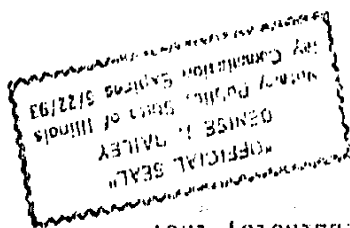 "OFFICIAL SEAL"
DENISE L. DAILEY
Notary Public, State of Illinois
My Commission Expires 5/22/93